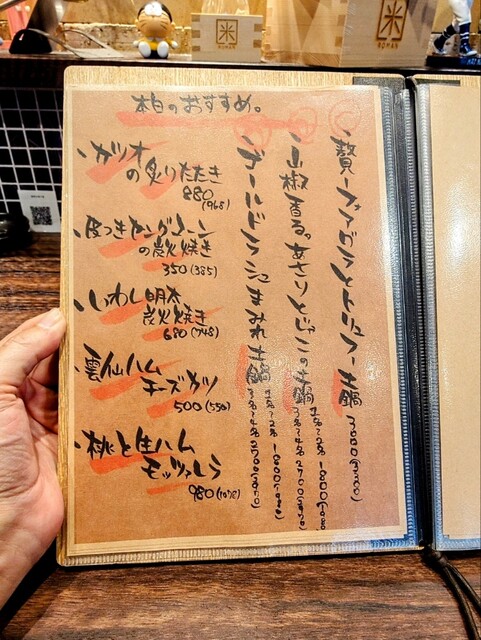 本日のおすすめ。
カツオ
の炙りたたき
880(968)
皮つきヤングコーン
の炭火焼き
350(385)
いわし明太
炭火焼き
680(748)
雲仙ハム
チーズカツ
500(550)
桃と生ハム
モッツァレラ
980(1078)
贅 フォアグラとトリュフ 土鍋
山椒香る。あさりとじゃこの土鍋
1名〜2名 1800(1980)
3名〜4名 2700(2970)
ゴールドラッシュまみれ土鍋
1名〜2名 1800(1980)
3名〜4名 2700(2970)
米
ROMAN
米
ROMAN